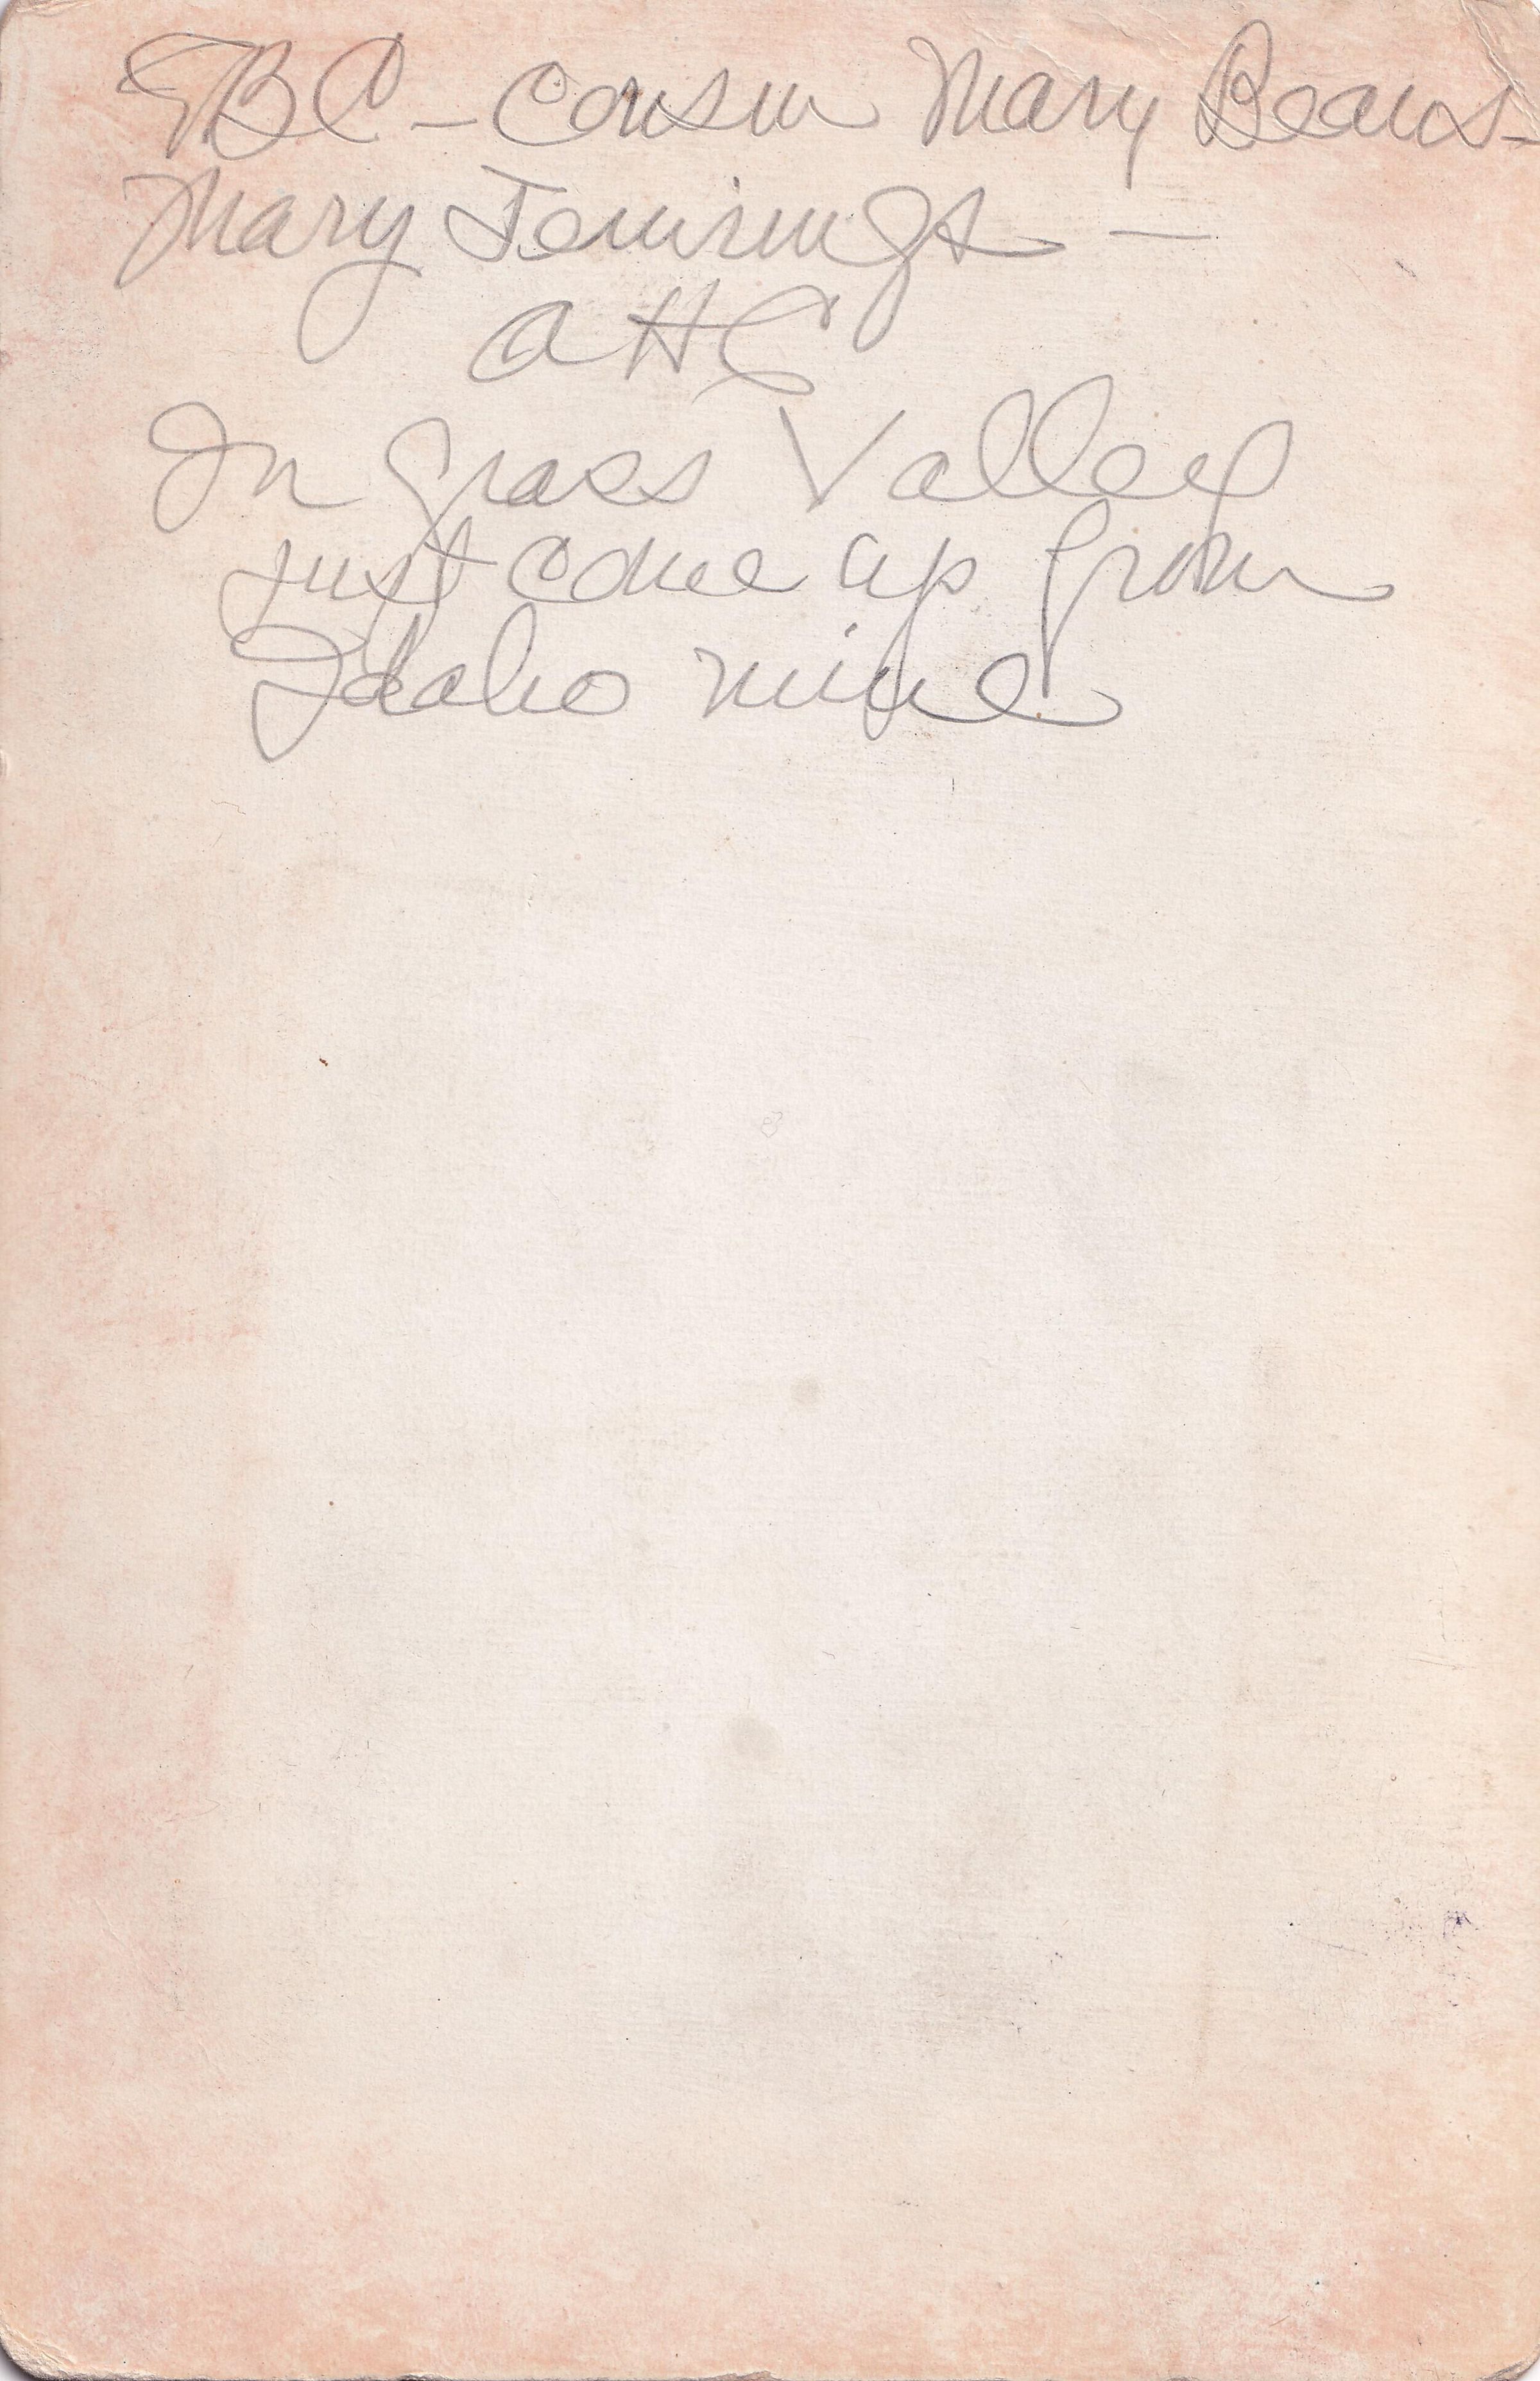 EBC - Cousin Mary Beans -
Mary Jennings -
AHC
In Grass Valley
just come up from
Idaho mine